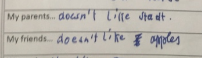 My parents... doesn't like start.
My friends... doesn't like apples